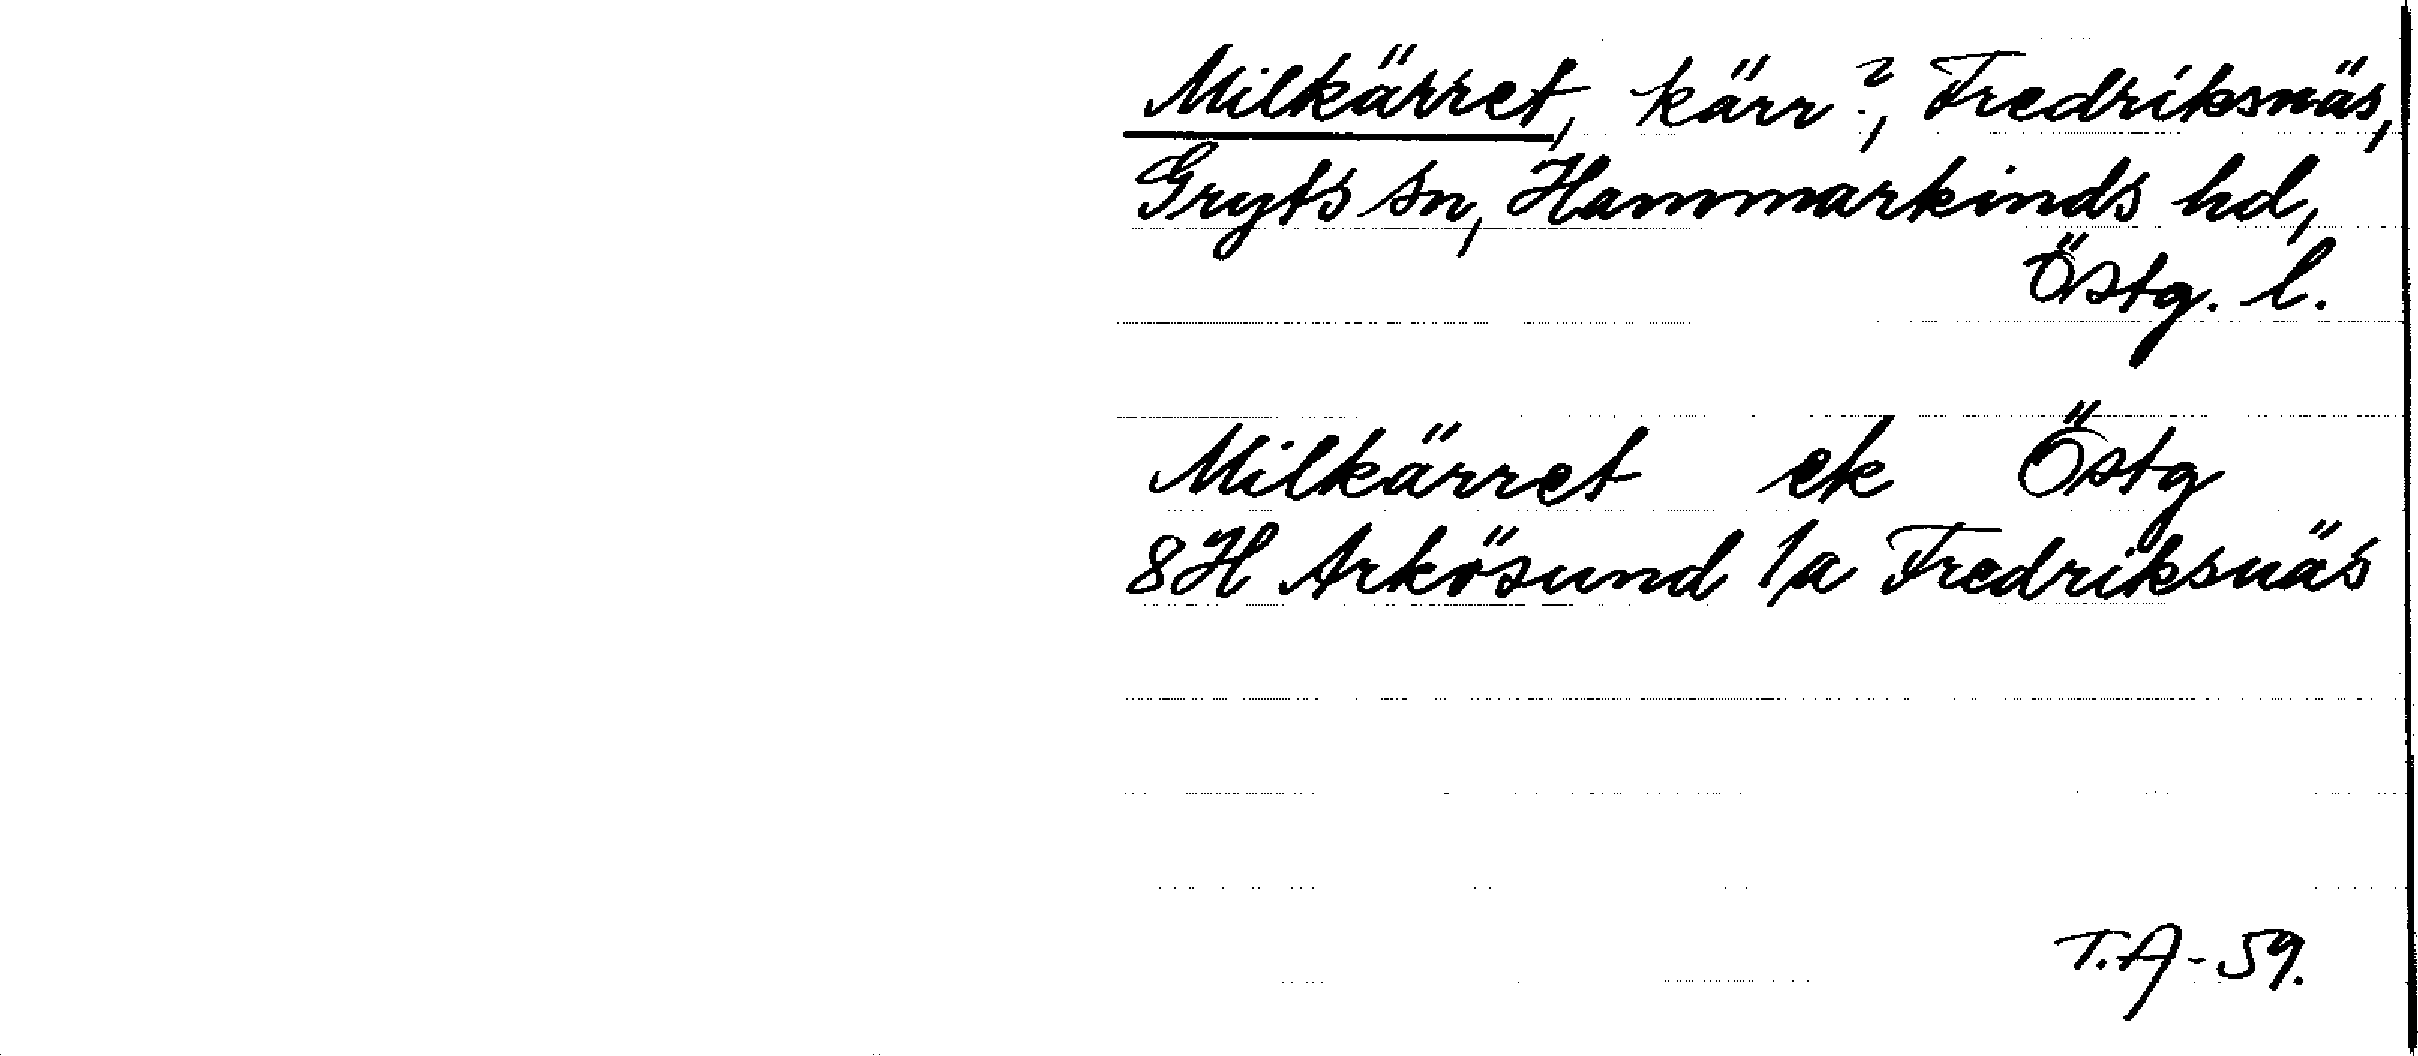 Milkärret, kärr?, Fredriksnäs,
Gryts sn, Hammarkinds hd,
Östg. l.
Milkärret ek Östg
8H Arkösund 1a Fredriksnäs
T.A-59.